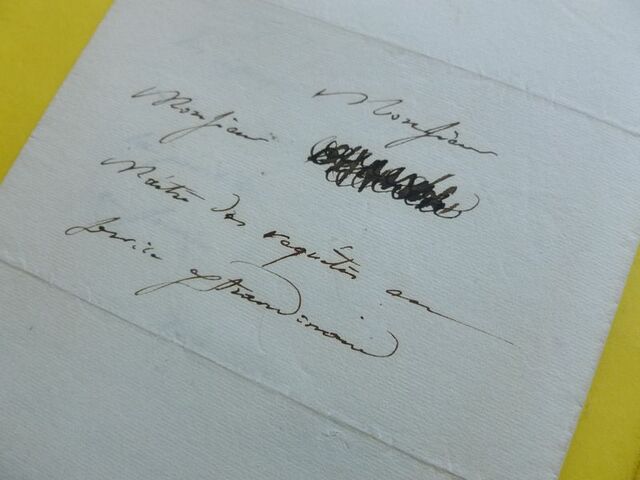 Monsieur Monsieur
Maitre des requêtes en
service Extraordinaire